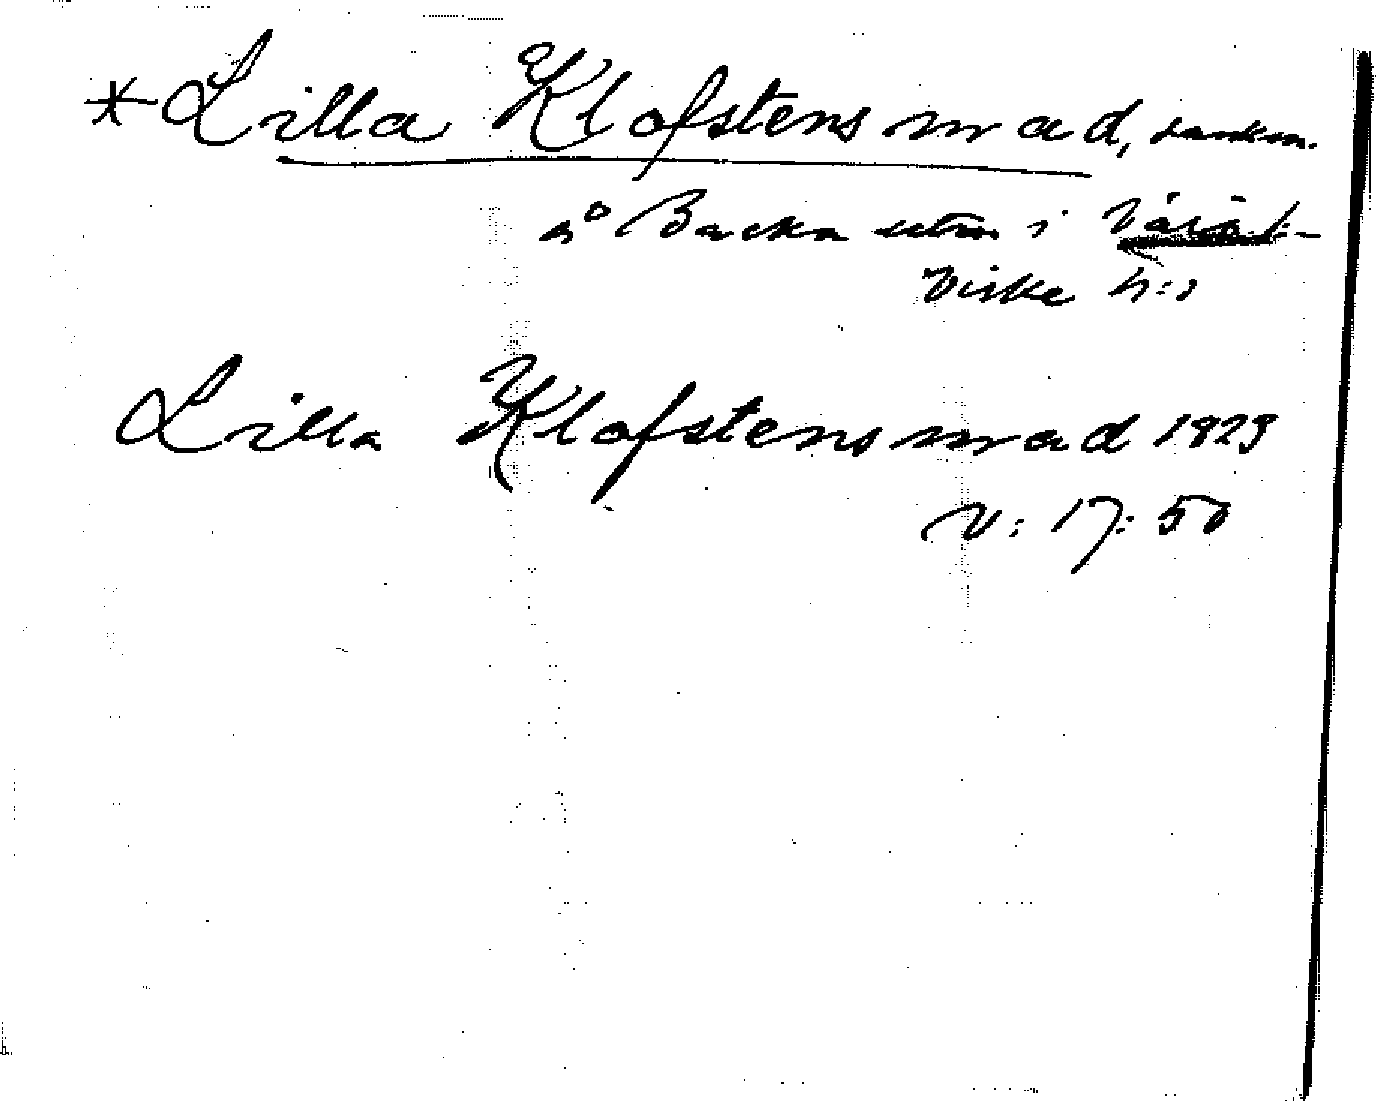 * Lilla Klofstens mad, sankm.
å Backa utm i Värö
Viske h:d
Lilla Klofstensmad 1823
V: 17: 50